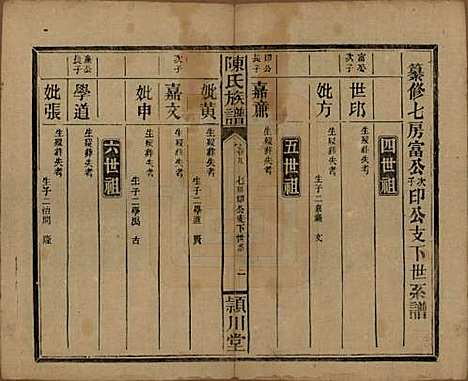 纂修七房富公次子印公支下世系譜
四世祖
富公次子
世印
生歿葬失考
妣方
生歿葬失考
生子二嘉 文
五世祖
印公長子
嘉
生歿葬失考
妣黄
生歿葬失考
生子二學道 賢
陳氏族譜
七房印公支下世系
一
頴川堂
次子
嘉文
生歿葬失考
妣申
生歿葬失考
生子二學 古
六世祖
公長子
學道
生歿葬失考
妣張
生歿葬失考
生子二 隆